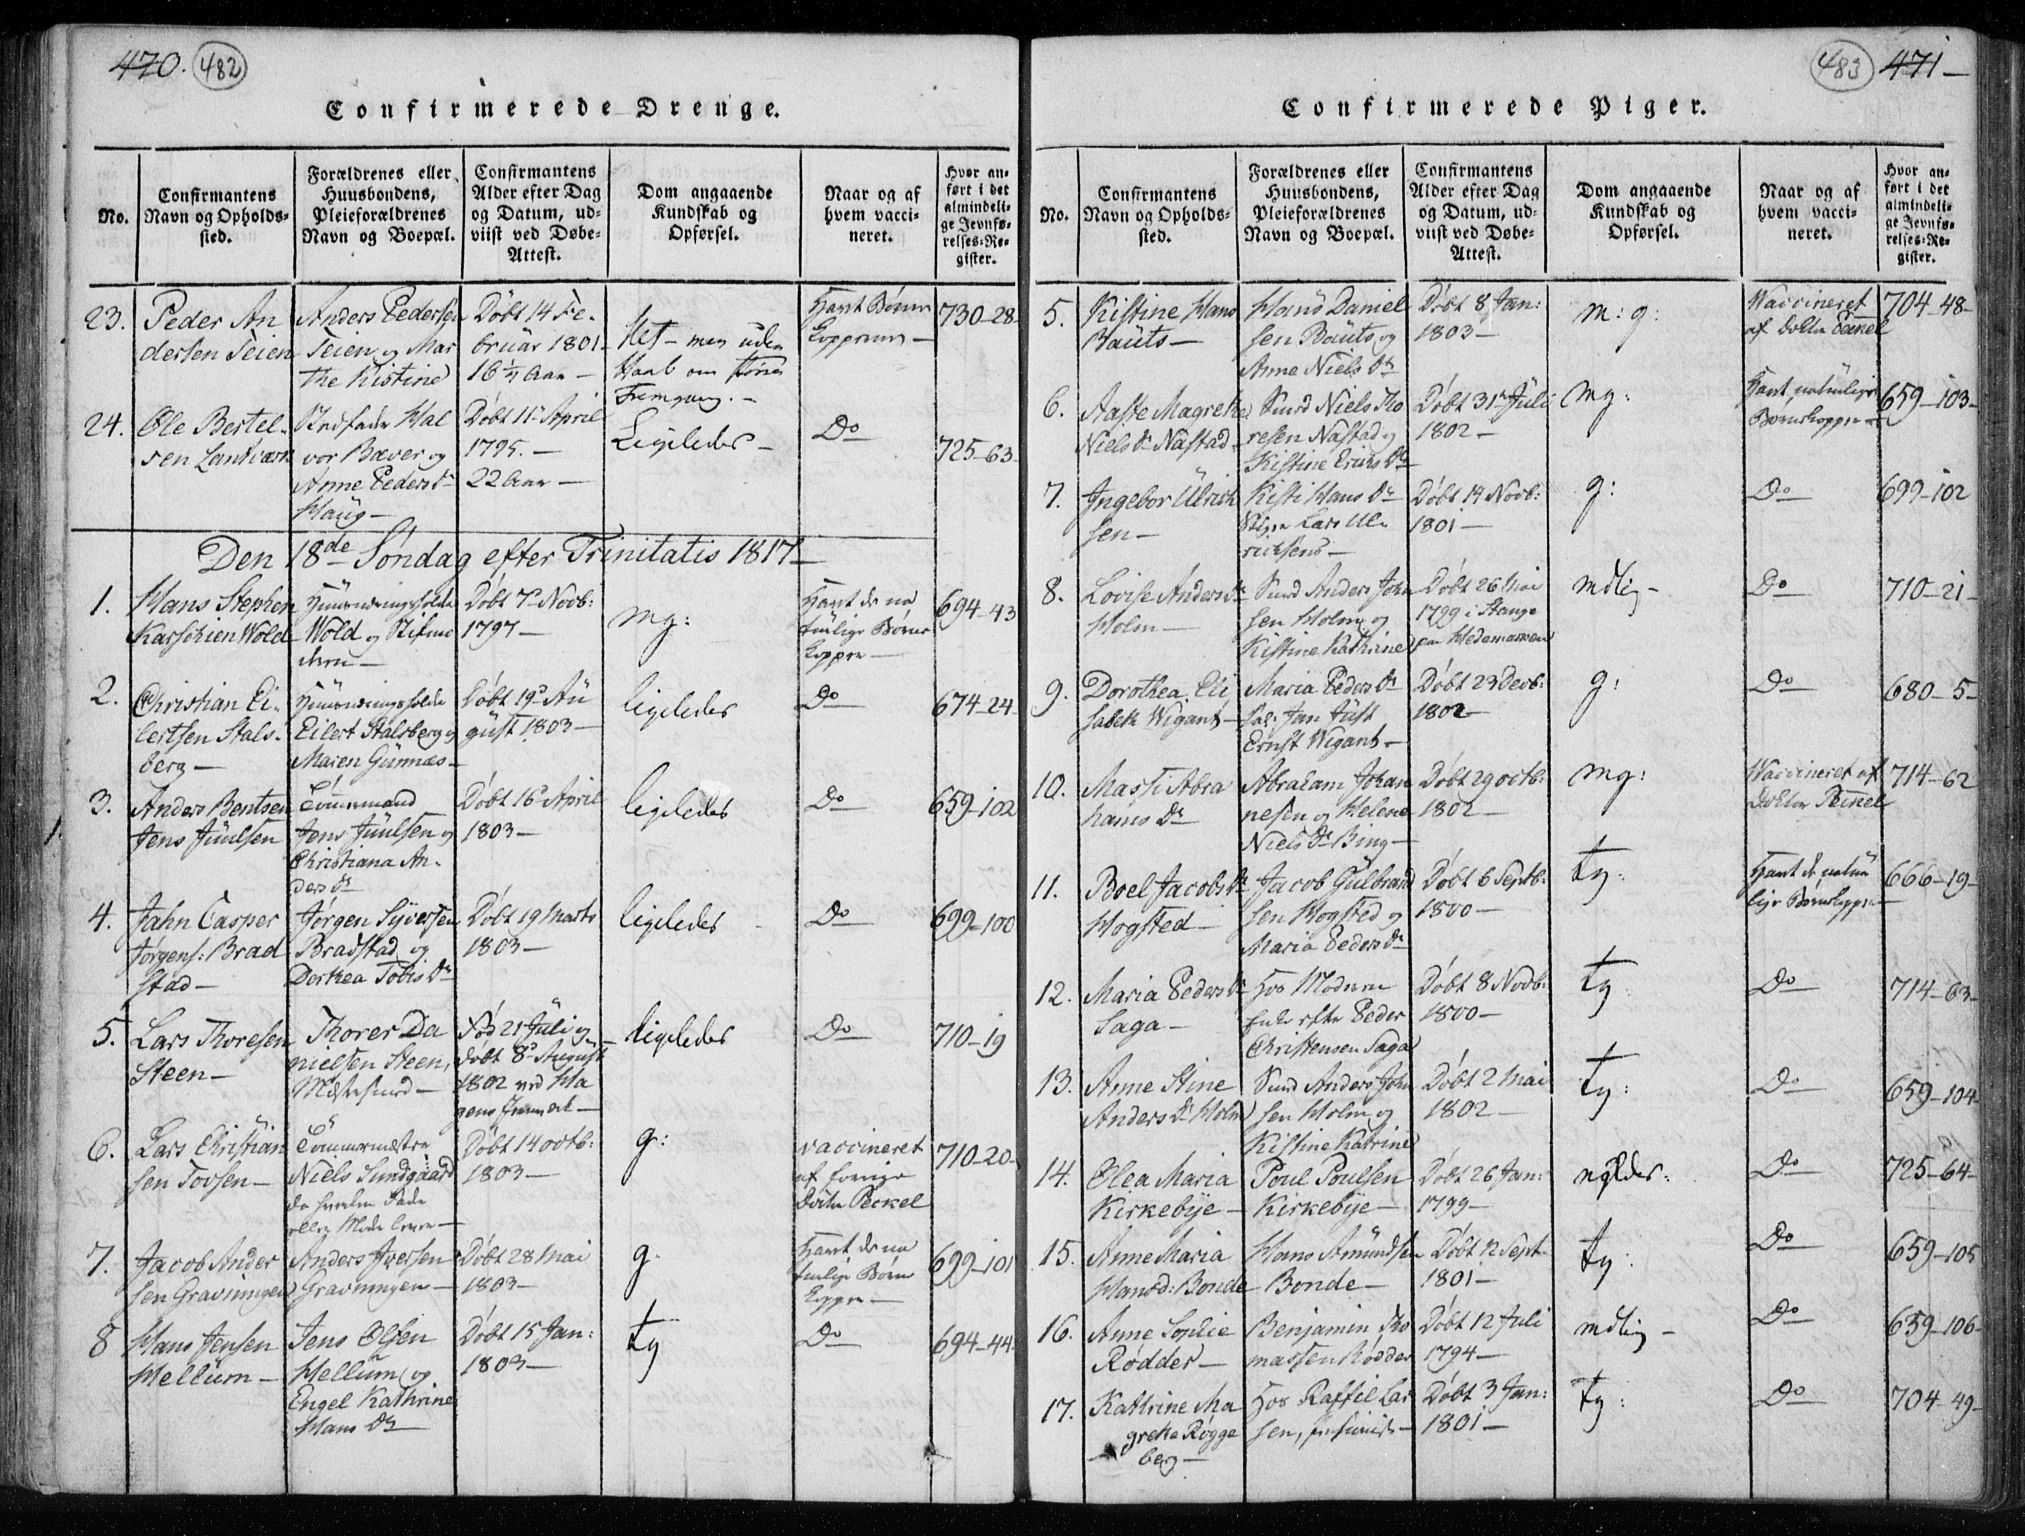 470. 482
Confirmerede Drenge.
No.
Confirmantens
Navn og Opholds-
sted.
Forældrenes eller
Huusbondens,
Pleieforældrenes
Navn og Boepæl.
Confirmantens
Alder efter Dag
og Datum, ud-
viist ved Døbe-
Attest.
Dom angaaende
Kundskab og
Opførsel.
Naar og af
hvem vacci-
neret.
Hvor an-
ført i det
almindeli-
ge Jevnfø-
relses-Re-
gister.
23.
Peder An
dersen Teien
Anders Pedersen
Teien og Mar
the Kistine
Døbt 14 Fe-
bruar 1801
16 1/2 Aar —
slet — men uden
Haab om større
Fremgang. —
Havt Børne
Kopperne —
730-28-
24.
Ole Bertel-
sen Landværn
Stedfader Hal
vor Bæver og
Anne Peders Dr
Haug —
Døbt 11te April
1795. —
22 Aar —
Ligeledes —
Do
725-63
Den 18de Søndag efter Trinitatis 1817 —
1.
Hans Stephen
Wold
Wold og Stifmo
deren —
Døbt 7de Novb:
1797 —
mg:
Havt de na
turlige Børne
Kopper —
694-43
2.
Christian Ei-
lertsen Stals-
berg —
Eilert Stalsberg og
Maren Gunnæs —
Døbt 19de Au
gust 1803 —
ligeledes
Do
674-24-
3.
Anders Bentsen
Jens Juulsen
Tømmermand
Jens Juulsen og
Christiana An-
ders Dr
Døbt 16de April
1803 —
ligeledes
Do
659-102
4.
Jahn Casper
Jørgens: Brad
stad —
Jørgen Syversen
Bradstad og
Dorthea Tobis Dr
Døbt 19 Marts
1803 —
ligeledes
Do
699-100
5.
Lars Thoresen
Steen —
Thorer Da
nielsen Steen,
Mestersmed —
Fød 21 Juli og
døbt 8de August
1802 ved Ha
gens
ligeledes
Do
710-19
6.
Lars Christian
sen Tovsen —
Tømmermester
Niels Sundgaard
da hverken Fader
eller Moder lever —
Døbt 14 octb:
1803 —
g:
vaccineret
af forrige
Doctor Peckel
710-20-
7.
Jacob Ander
sen Gravningen
Anders Iversen
Gravningen —
Døbt 28 Mai
1803 —
g.
Havt de na
turlige Børne
Kopper —
699-101
8
Hans Jensen
Mellum —
Jens Olsen
Mellum og
Engel Kathrine
Hans Dr
Døbt 15 Jan:
1803 —
tg
Do
694-44-
483 471 —
Confirmerede Piger.
No.
Confirmantens
Navn og Opholds-
sted.
Forældrenes eller
Huusbondens,
Pleieforældrenes
Navn og Boepæl.
Confirmantens
Alder efter Dag
og Datum, ud-
viist ved Døbe-
Attest.
Dom angaaende
Kundskab og
Opførsel.
Naar og af
hvem vacci-
neret.
Hvor an-
ført i det
almindeli-
ge Jevnfø-
relses-Re-
gister.
5.
Kistine Hans
Bauts —
Hans Daniel
sen Bauts og
Anne Niels Dr
Døbt 8 Jan:
1803 —
m: g:
Vaccineret
af Doctor
704-48-
6.
Aasse Magrethe
Niels Dr Nastad
Smed Niels Tho
resen Nastad og
Kistine Erichs Dr
Døbt 31te Juli
1802 —
mg:
Havt naturlige
Børnekopper —
659-103-
7.
Ingebor Ulrich
sen —
Kisti Hans Dr
Salige Lars Ul-
richsens —
Døbt 14 Novb:
1801 —
g:
Do
699-102
8.
Lovise Anders Dr
Holm —
Smed Anders John
sen Holm og
Kistine Kathrine
Døbt 26 Mai
1799 i Stange
paa Hedemarken
mdlig —
Do
710-21-
9.
Dorothea Eli
sabeth Wigant —
Maria Peders Dr
Sal: Jan Just
Ernst Wigant —
Døbt 23 Decb:
1802 —
g:
Do
680-5-
10.
Massi Abra
hams Dr
Abraham Johan
nesen og Helene
Niels Dr Bing —
Døbt 29 octb:
1802 —
mg:
Vaccineret af
Doctor
714-62
11.
Boel Jacobs Dr
Hogsted —
Jacob Gulbrand
sen Hogsted og
Maria Peders Dr
Døbt 6 Septb:
1800 —
tg:
Havt de natur
lige Børnekopper
666-19-
12.
Maria Peders Dr
Saga —
Hos Moderen
Enke efter Peder
Christensen Saga
Døbt 8 Novb:
1800 —
tg:
Do
714-63-
13.
Anne Stine
Anders Dr Holm
Smed Anders John
sen Holm og
Kistine Katrine
Døbt 2 Mai
1802 —
tg:
Do
659-104-
14.
Olea Maria
Kirkebye —
Poul Poulsen
Kirkebye —
Døbt 26 Jan:
1799 —
Do
725-64-
15.
Anne Maria
Hansd: Bonde
Hans Amundsen
Bonde —
Døbt 12 Sept
1801 —
tg:
Do
659-105
16.
Anne Sophie
Rødder —
Benjamin Tho
massen Rødder
Døbt 12 Juli
1794 —
mdlig —
Do
659-106-
17.
Kathrine Ma
grethe Røgge
berg —
Hos Raffel Lar
sen,
Døbt 3 Jan:
1801 —
tg:
Do
704-49-